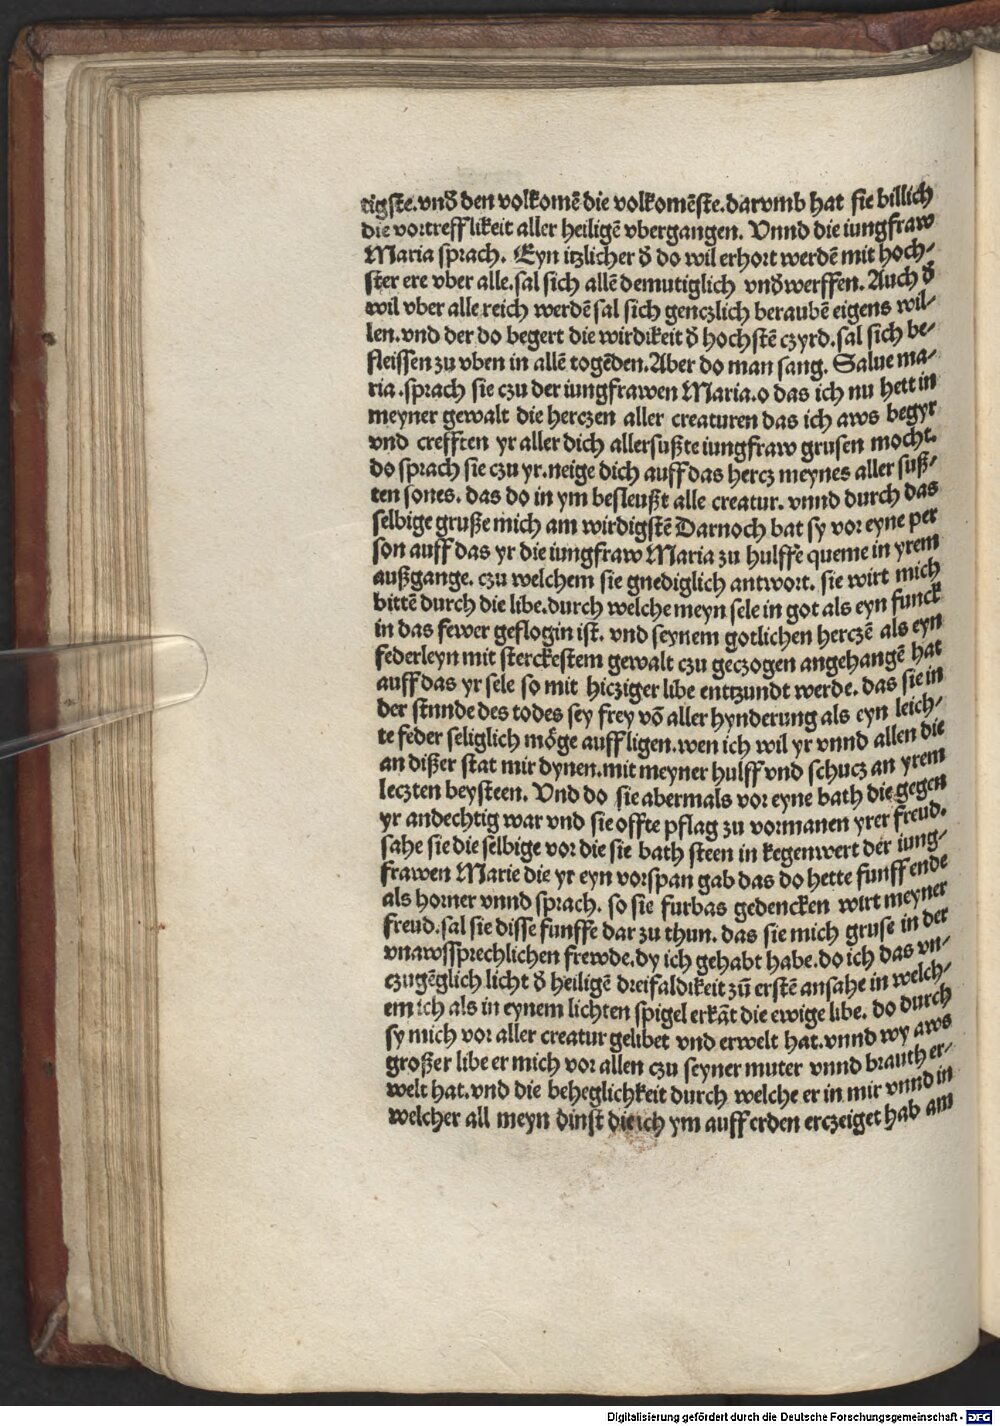 tigste.vnd̄ den volkomē die volkomēste.darvmb hat sie billich
die vortrefflikeit aller heiligē vbergangen. Vnnd die iungfraw
Maria sprach. Eyn itzlicher d̄ do wil erhort werdē mit hoch-
ster ere vber alle.sal sich allē demutiglich vnd̄werffen. Auch d̄
wil vber alle reich werdē sal sich genczlich beraubē eigens wil-
len.vnd der do begert die wirdikeit d̄ hochstē czyrd.sal sich be-
fleissen zu vben in allē togēden.Aber do man sang. Salue ma-
ria .sprach sie czu der iungfrawen Maria.o das ich nu hett in
meyner gewalt die herczen aller creaturen das ich aws begyr
vnd crefften yr aller dich allersußte iungfraw grusen mocht.
do sprach sie czu yr.neige dich auff das hercz meynes aller suß-
ten sones. das do in ym besleußt alle creatur. vnnd durch das
selbige gruße mich am wirdigstē Darnoch bat sy vor eyne per
son auff das yr die iungfraw Maria zu hulffe queme in yrem
außgange. czu welchem sie gnediglich antwort. sie wirt mich
bittē durch die libe.durch welche meyn sele in got als eyn funck
in das fewer geflogin ist. vnd seynem gotlichen herczē als eyn
federleyn mit sterckestem gewalt czu geczogen angehangē hat
auff das yr sele so mit hicziger libe entzundt werde. das sie in
der stnnde des todes sey frey vō aller hynderung als eyn leich-
te feder seliglich möge auff ligen.wen ich wil yr vnnd allen die
an dißer stat mir dynen.mit meyner hulff vnd schucz an yrem
leczten beysteen. Vnd do sie abermals vor eyne bath die gegen
yr andechtig war vnd sie offte pflag zu vormanen yrer freud.
sahe sie die selbige vor die sie bath steen in kegenwert der iung-
frawen Marie die yr eyn vorspan gab das do hette funff ende
als horner vnnd sprach. so sie furbas gedencken wirt meyner
freud.sal sie disse funffe dar zu thun. das sie mich gruse in der
vnawssprechlichen frewde.dy ich gehabt habe.do ich das vn-
czugēglich licht d̄ heiligē dreifaldikeit zū erstē ansahe in welch-
em ich als in eynem lichten spigel erkāt die ewige libe. do durch
sy mich vor aller creatur gelibet vnd erwelt hat.vnnd wy aws
großer libe er mich vor allen czu seyner muter vnnd brauth er-
welt hat.vnd die beheglichkeit durch welche er in mir vnnd in
welcher all meyn dinst die ich ym auff erden erczeiget hab am
Digitalisierung gefördert durch die Deutsche Forschungsgemeinschaft - DFG